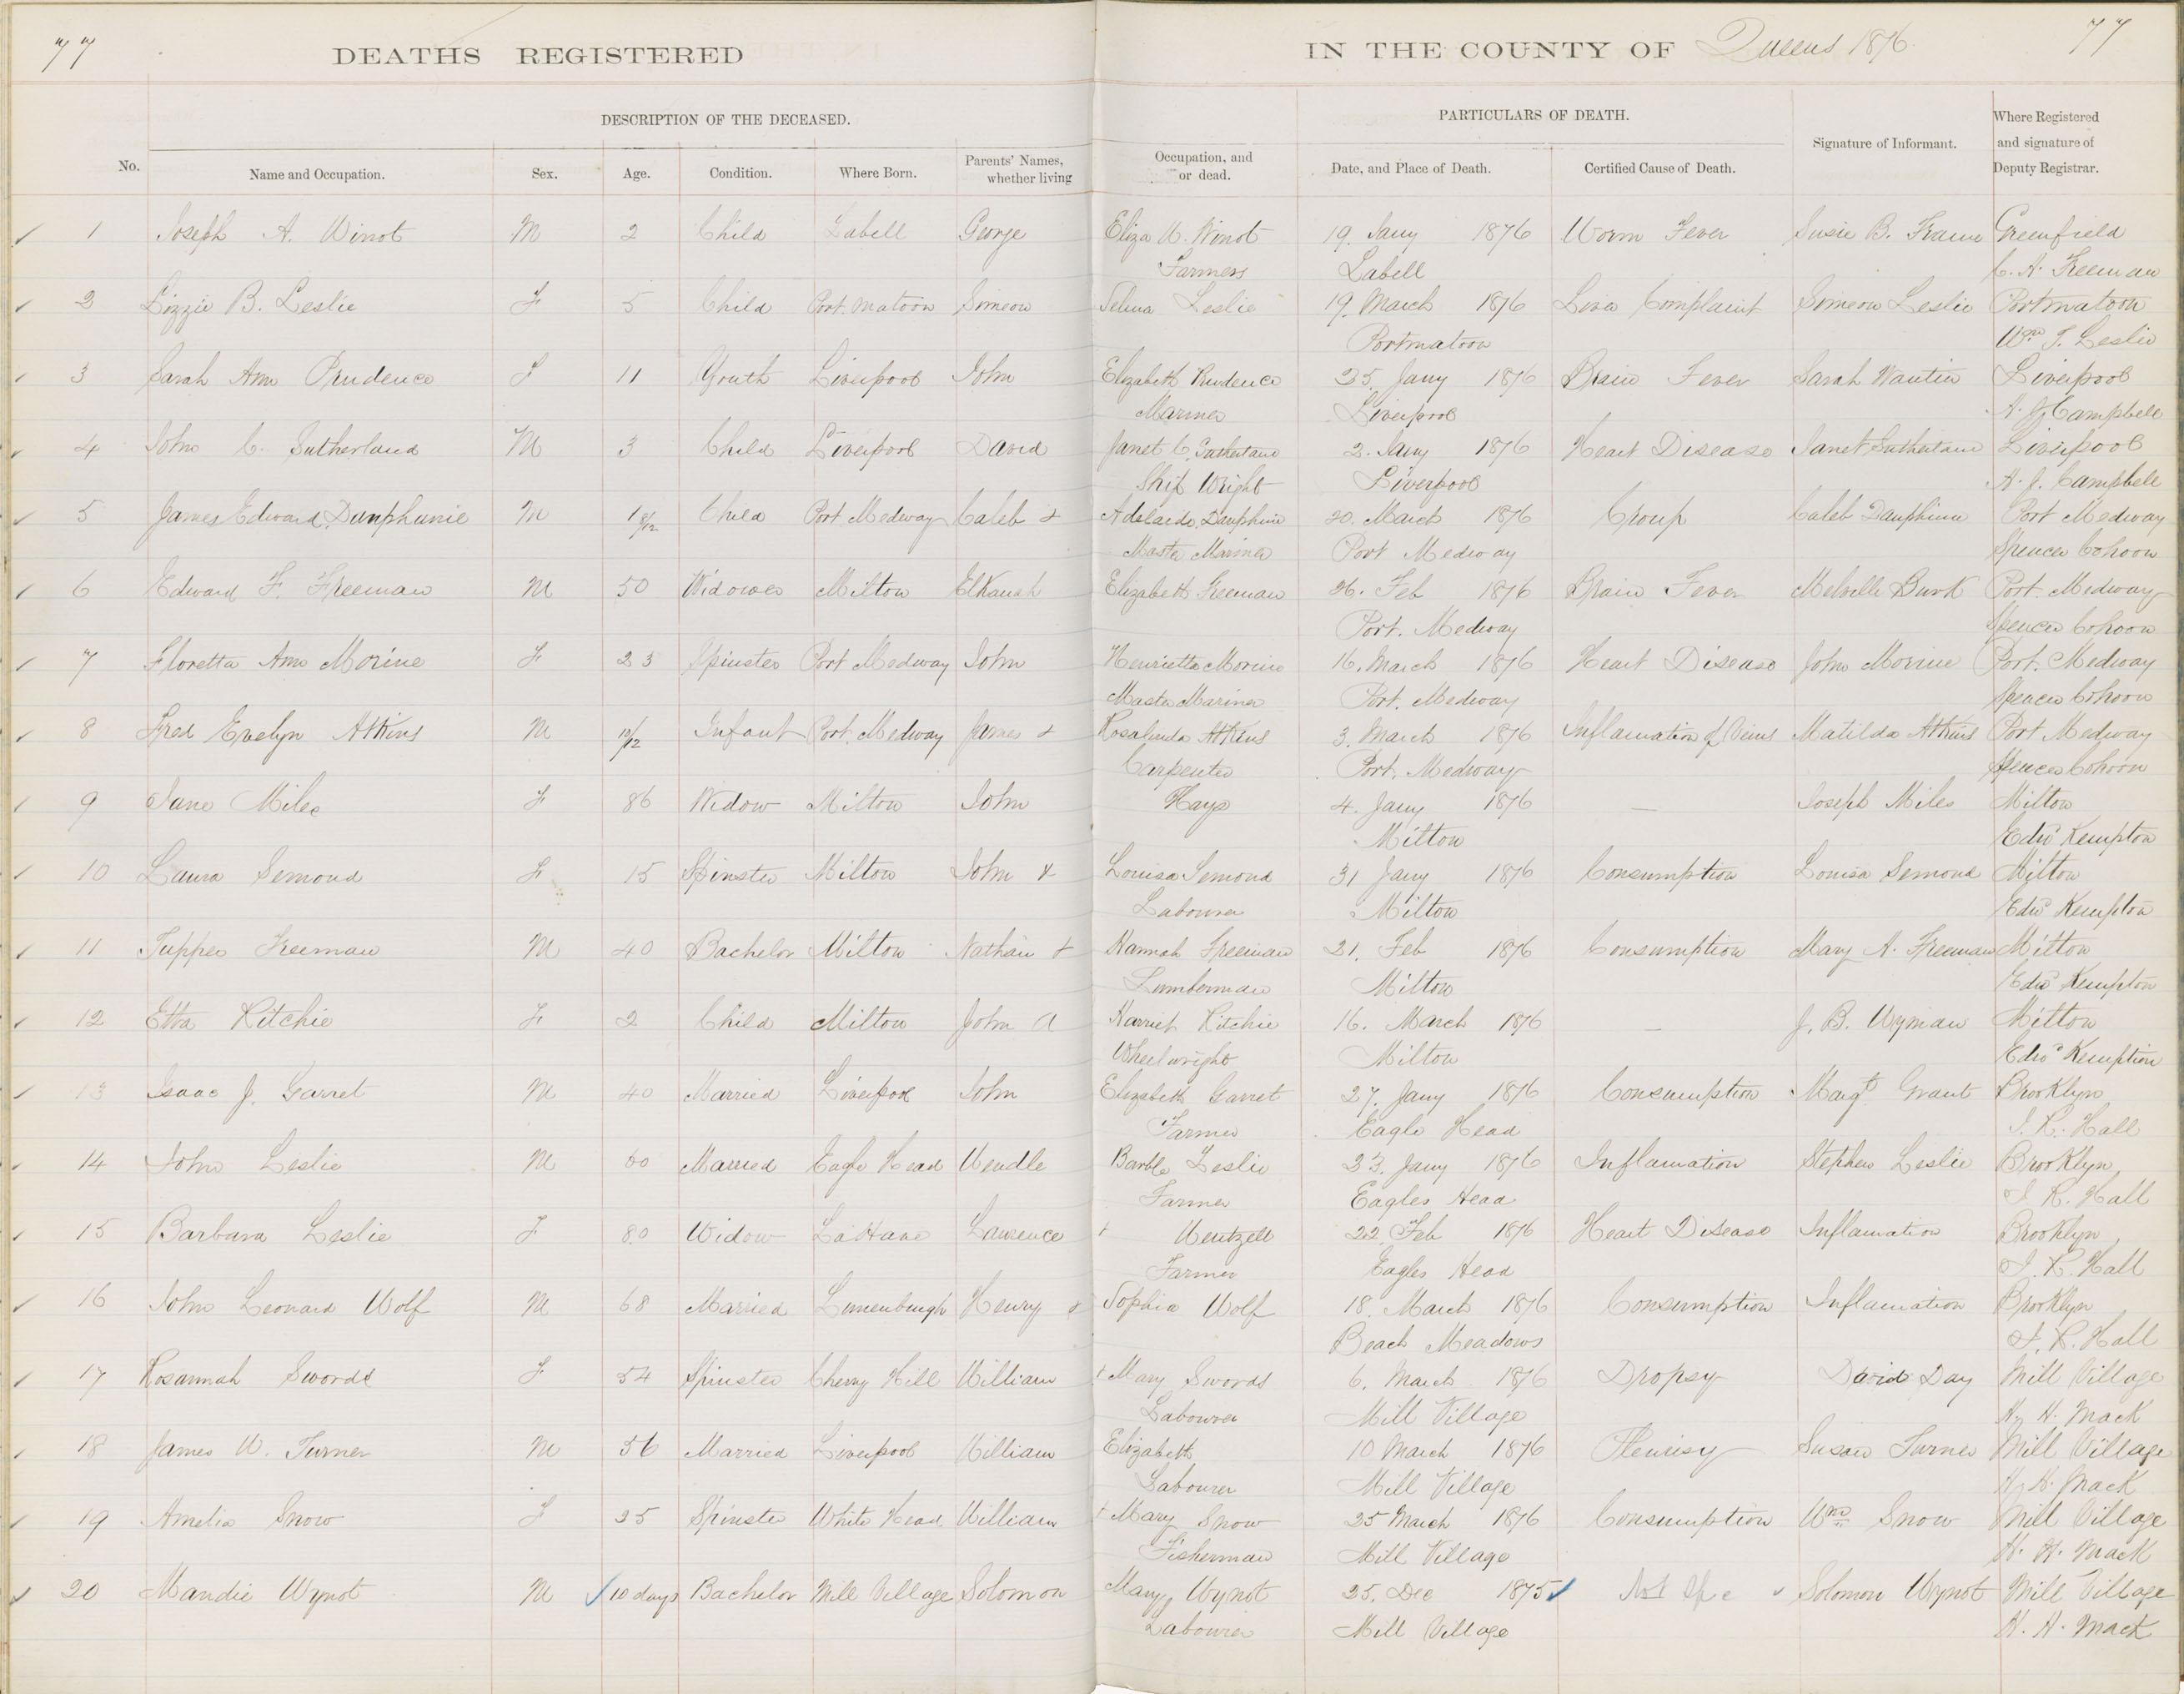 77 DEATHS REGISTERED IN THE COUNTY OF Queens 1876. 77
DESCRIPTION OF THE DECEASED. PARTICULARS OF DEATH.
No. Name and Occupation. Sex. Age. Condition. Where Born. Parents' Names, whether living Occupation, and or dead. Date, and Place of Death. Certified Cause of Death. Signature of Informant. Where Registered and signature of Deputy Registrar.
1 Joseph A. Winot M 2 Child Labell George Eliza W. Winot 19. Jany 1876 Worm Fever Susie B. Greenfield
Farmers Labell C. A. Freeman
2 Lizzie B. Leslie F 5 Child Port. Matoon Simeon Selina Leslie 19. March 1876 Liver Complaint Simeon Leslie Portmatoon
Portmatoon Wm T. Leslie
3 Sarah Ann Prudence F 11 Youth Liverpool John Elizabeth Prudence 25. Jany 1876 Brain Fever Sarah Liverpool
Mariner Liverpool A. J. Campbell
4 John C. Sutherland M 3 Child Liverpool David Janet C. Sutherland 2. Jany 1876 Heart Disease Janet Sutherland Liverpool
Ship Wright Liverpool A. J. Campbell
5 James Edward Dauphanie M 1 8/12 Child Port Medway Caleb + Adelaide Dauphine 20. March 1876 Croup Caleb Dauphinee Port Medway
Master Mariner Port Medway Spencer Cohoon
6 Edward F. Freeman M 50 Widower Milton Elkanah Elizabeth Freeman 26. Feb 1876 Brain Fever Melville Burk Port. Medway
Port. Medway Spencer Cohoon
7 Floretta Ann Morine F 23 Spinster Port Medway John Henrietta Morine 16. March 1876 Heart Disease John Morine Port. Medway
Master Mariner Port. Medway Spencer Cohoon
8 Fred Evelyn Atkins M 10/12 Infant Port. Medway James + Rosalinda Atkins 3. March 1876 Inflamation of Veins Matilda Atkins Port Medway
Carpenter Port. Medway Spencer Cohoon
9 Jane Miles F 86 Widow Milton John Hays 4. Jany 1876 — Joseph Miles Milton
Milton Edw Kempton
10 Laura Semond F 15 Spinster Milton John + Louisa Semond 31 Jany 1876 Consumption Louisa Semond Milton
Labourer Milton Edw Kempton
11 Tupper Freeman M 40 Bachelor Milton Nathan + Hannah Freeman 21. Feb 1876 Consumption Mary A. Freeman Milton
Lumberman Milton Edw Kempton
12 Etta Ritchie F 2 Child Milton John A Harriet Ritchie 16. March 1876 — J. B. Wyman Milton
Wheelwright Milton Edw Kemption
13 Isaac J. Garret M 40 Married Liverpool John Elizabeth Garret 27. Jany 1876 Consumption Margt Grant Brooklyn
Farmer Eagle Head J. R. Hall
14 John Leslie M 60 Married Eagle Head Wendle Barble Leslie 23. Jany 1876 Inflamation Stephen Leslie Brooklyn
Farmer Eagles Head J. R. Hall
15 Barbara Leslie F 80 Widow LaHave Lawrence + Wentzell 22. Feb 1876 Heart Disease Inflamation Brooklyn
Farmer Eagles Head J. R. Hall
16 John Leonard Wolf M 68 Married Lunenburgh Henry + Sophia Wolf 18. March 1876 Consumption Inflamation Brooklyn
Beach Meadows J. R. Hall
17 Rosannah Swords F 54 Spinster Cherry Hill William + Mary Swords 6. March 1876 Dropsy David Day Mill Village
Labourer Mill Village H. H. Mack
18 James W. Turner M 56 Married Liverpool William Elizabeth 10 March 1876 Pleurisy Susan Turner Mill Village
Labourer Mill Village H. H. Mack
19 Amelia Snow F 25 Spinster White Head William + Mary Snow 25 March 1876 Consumption Wm Snow Mill Village
Fisherman Mill Village H. H. Mack
20 Mandie Wynot M 10 days Bachelor Mill Village Solomon Mary Wynot 25. Dec 1875 Not Solomon Wynot Mill Village
Labourer Mill Village H. H. Mack